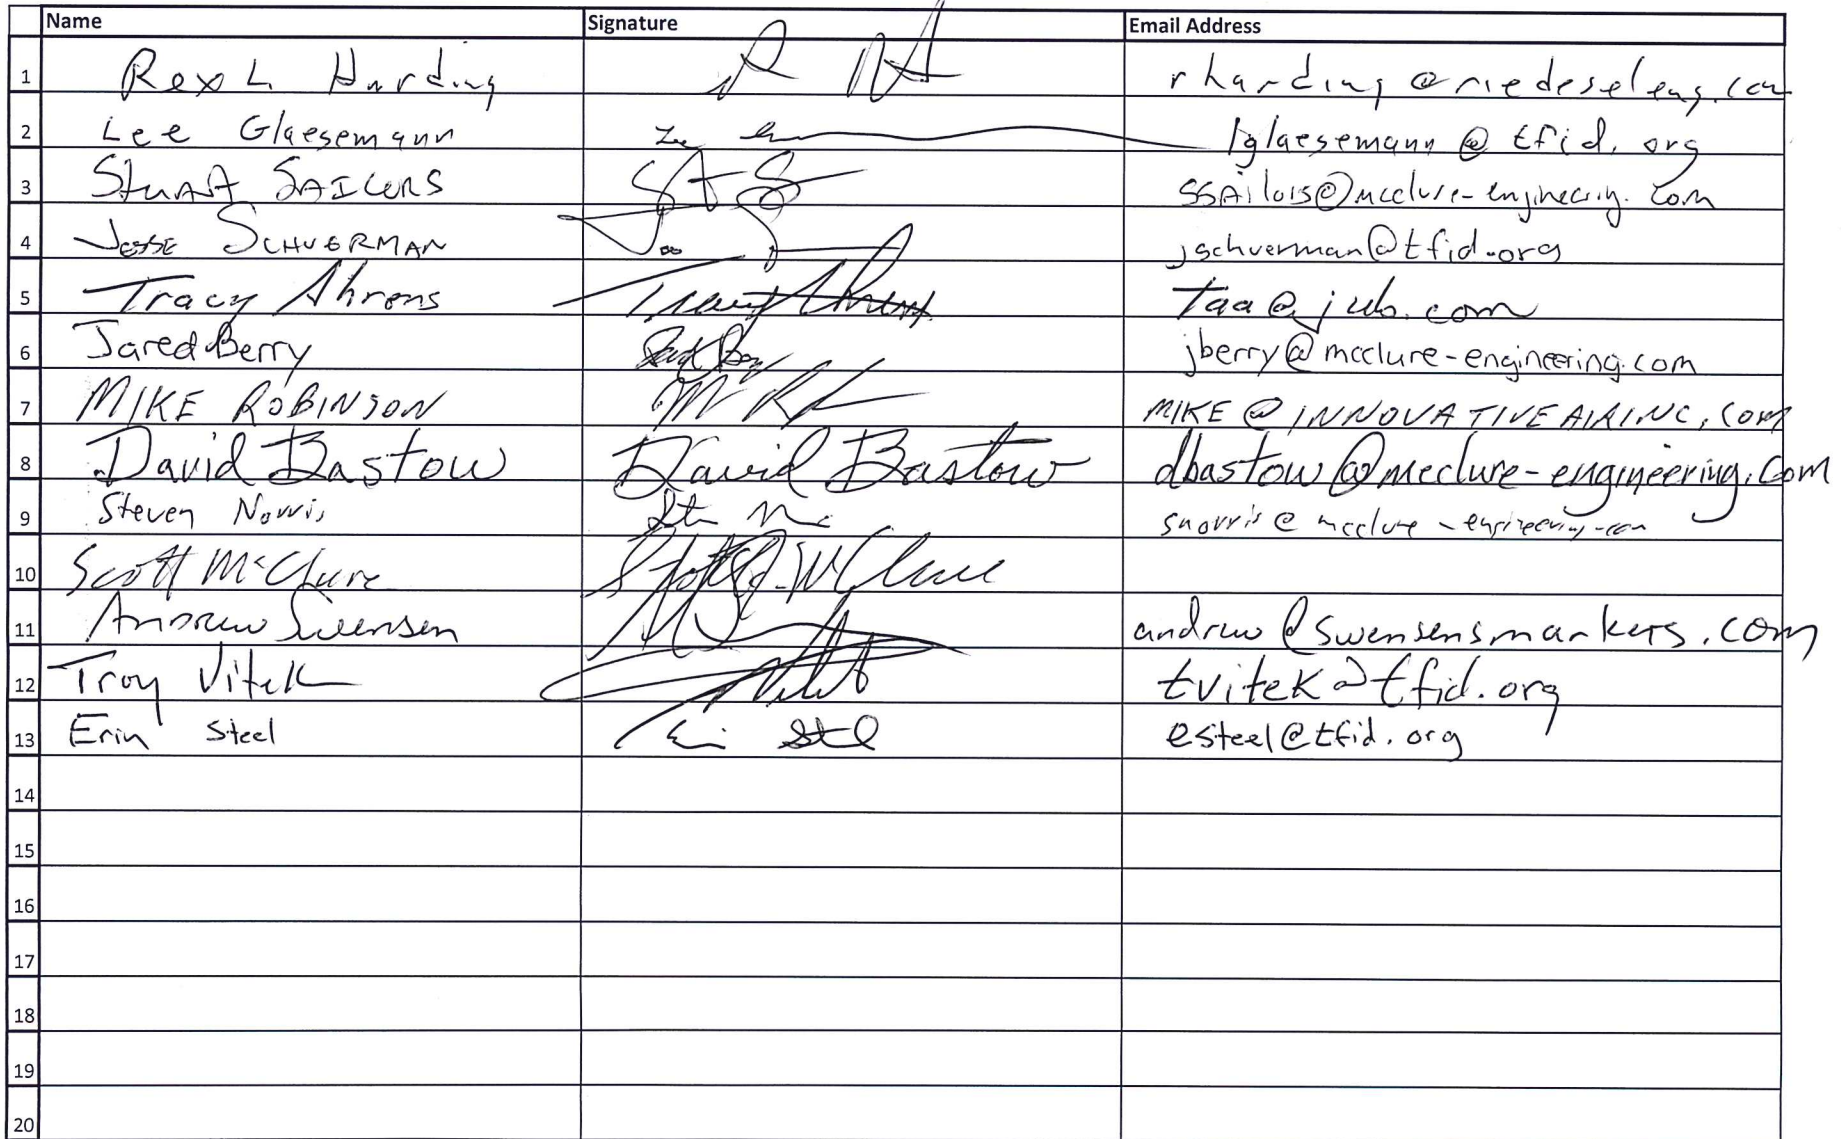 Name Signature Email Address
1 Rex L Harding rharding@riedeseleng.com
2 Lee Glaesemann lglaesemann@tfid.org
3 Stuart SAILORS SSAilors@mcclure-engineering.com
4 Jesse SCHUERMAN jschuerman@tfid.org
5 Tracy Ahrens Tracy Ahrens taa@jub.com
6 Jared Berry jberry@mcclure-engineering.com
7 MIKE ROBINSON MIKE@INNOVATIVEAIRINC.COM
8 David Bastow David Bastow dbastow@mcclure-engineering.com
9 Steven Norris snorris@mcclure-engineering.com
10 Scott McClure
11 Andrew Swensen andrew@swensensmarkets.com
12 Troy Vitek tvitek@tfid.org
13 Erin Steel esteel@tfid.org
14
15
16
17
18
19
20